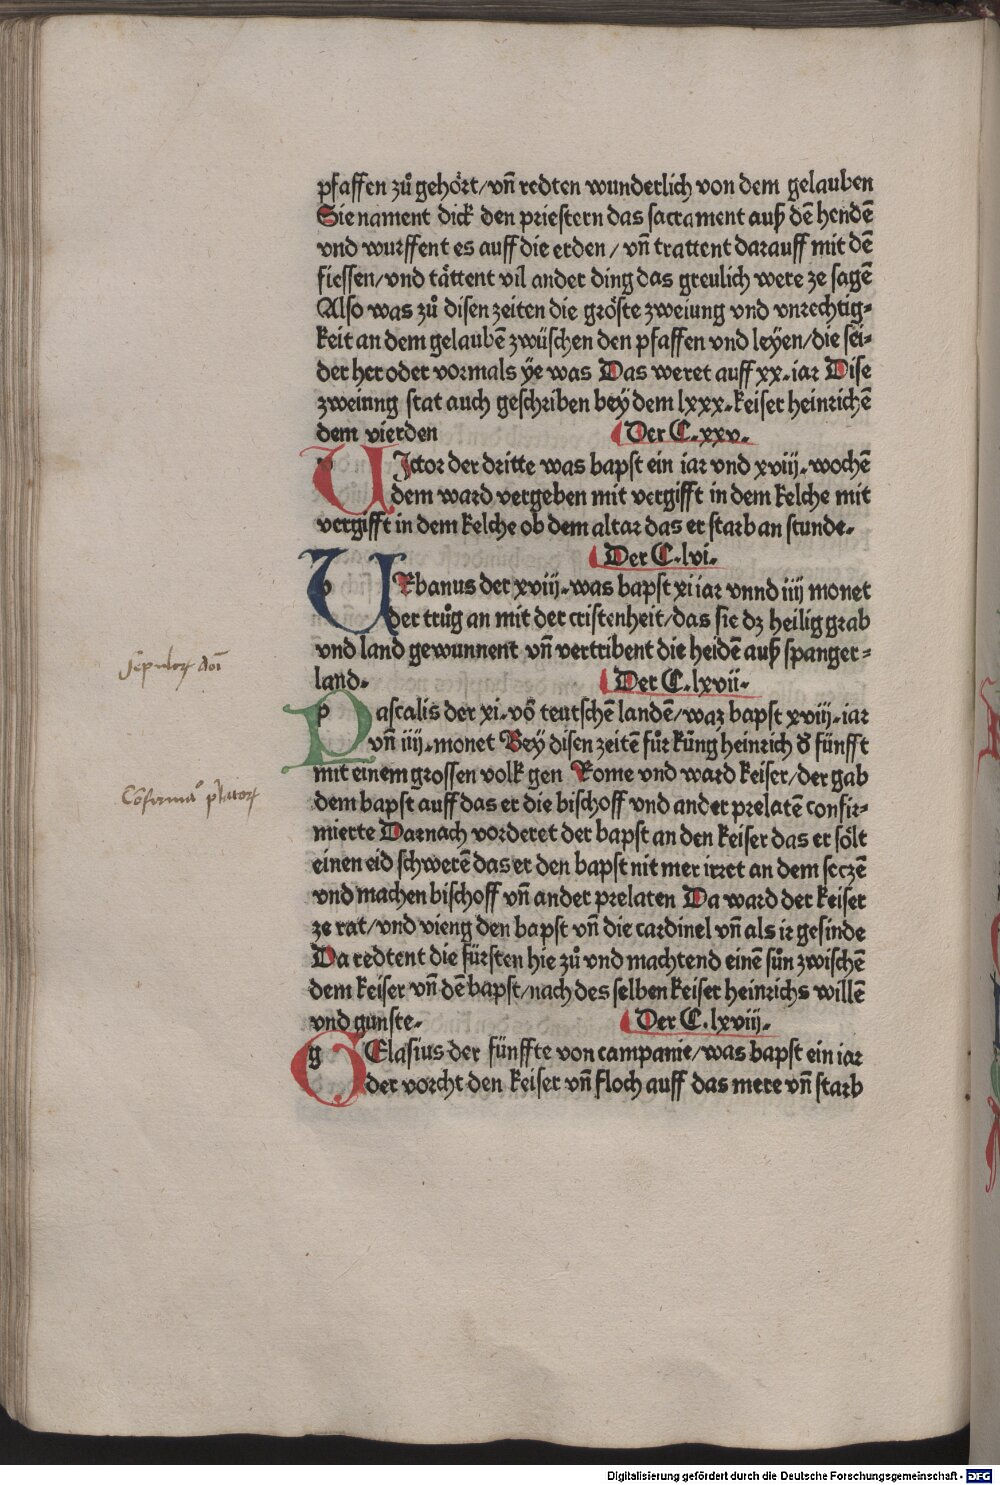 pfaffen zů gehoͤrt/vn̄ redten wunderlich von dem gelauben
Sie nament dick den priestern das sacrament auß dē hendē
vnd wurffent es auff die erden/vn̄ trattent darauff mit dē
fiessen/vnd taͤttent vil ander ding das greulich were ze sagē
Also was zů disen zeiten die groͤste zweiung vnd vnrechtig-
keit an dem gelaubē zwüschen den pfaffen vnd leyen/die sei-
der her oder vormals ÿe was Das weret auff xx.iar Dise
zweinng stat auch geschriben beÿ dem lxxx.keiser heinrichē
dem vierden Der C.xxv.
UJctor der dritte was bapst ein iar vnd xviij.wochē
dem ward vergeben mit vergifft in dem kelche mit
vergifft in dem kelche ob dem altar das er starb an stunde.
Der C.lvi.
URbanus der xviij.was bapst xi iar vnnd iiij monet
der trůg an mit der cristenheit/das sie dz heilig grab
vnd land gewunnent vn̄ vertribent die heidē auß spanger-
land. Der C.lxvii.
Sepulcr dn̄i
Pascalis der xi.vō teutschē landē/waz bapst xviij.iar
vn̄ iiij.monet Beÿ disen zeitē fůr kůng heinrich d' fünfft
mit einem grossen volk gen Rome vnd ward keiser/der gab
dem bapst auff das er die bischoff vnd ander prelatē confir-
mierte Darnach vorderet der bapst an den keiser das er soͤlt
einen eid schwerē das er den bapst nit mer irret an dem seczē
vnd machen bischoff vn̄ ander prelaten Da ward der keiser
ze rat/vnd vieng den bapst vn̄ die cardinel vn̄ als ir gesinde
Da redtent die fürsten hie zů vnd machtend einē sůn zwischē
dem keiser vn̄ dē bapst/nach des selben keiser heinrichs willē
vnd gunste. Der C.lxviij.
GElasius der fünffte von campanie/was bapst ein iar
der vorcht den keiser vn̄ floch auff das mere vn̄ starb
Digitalisierung gefördert durch die Deutsche Forschungsgemeinschaft - DFG